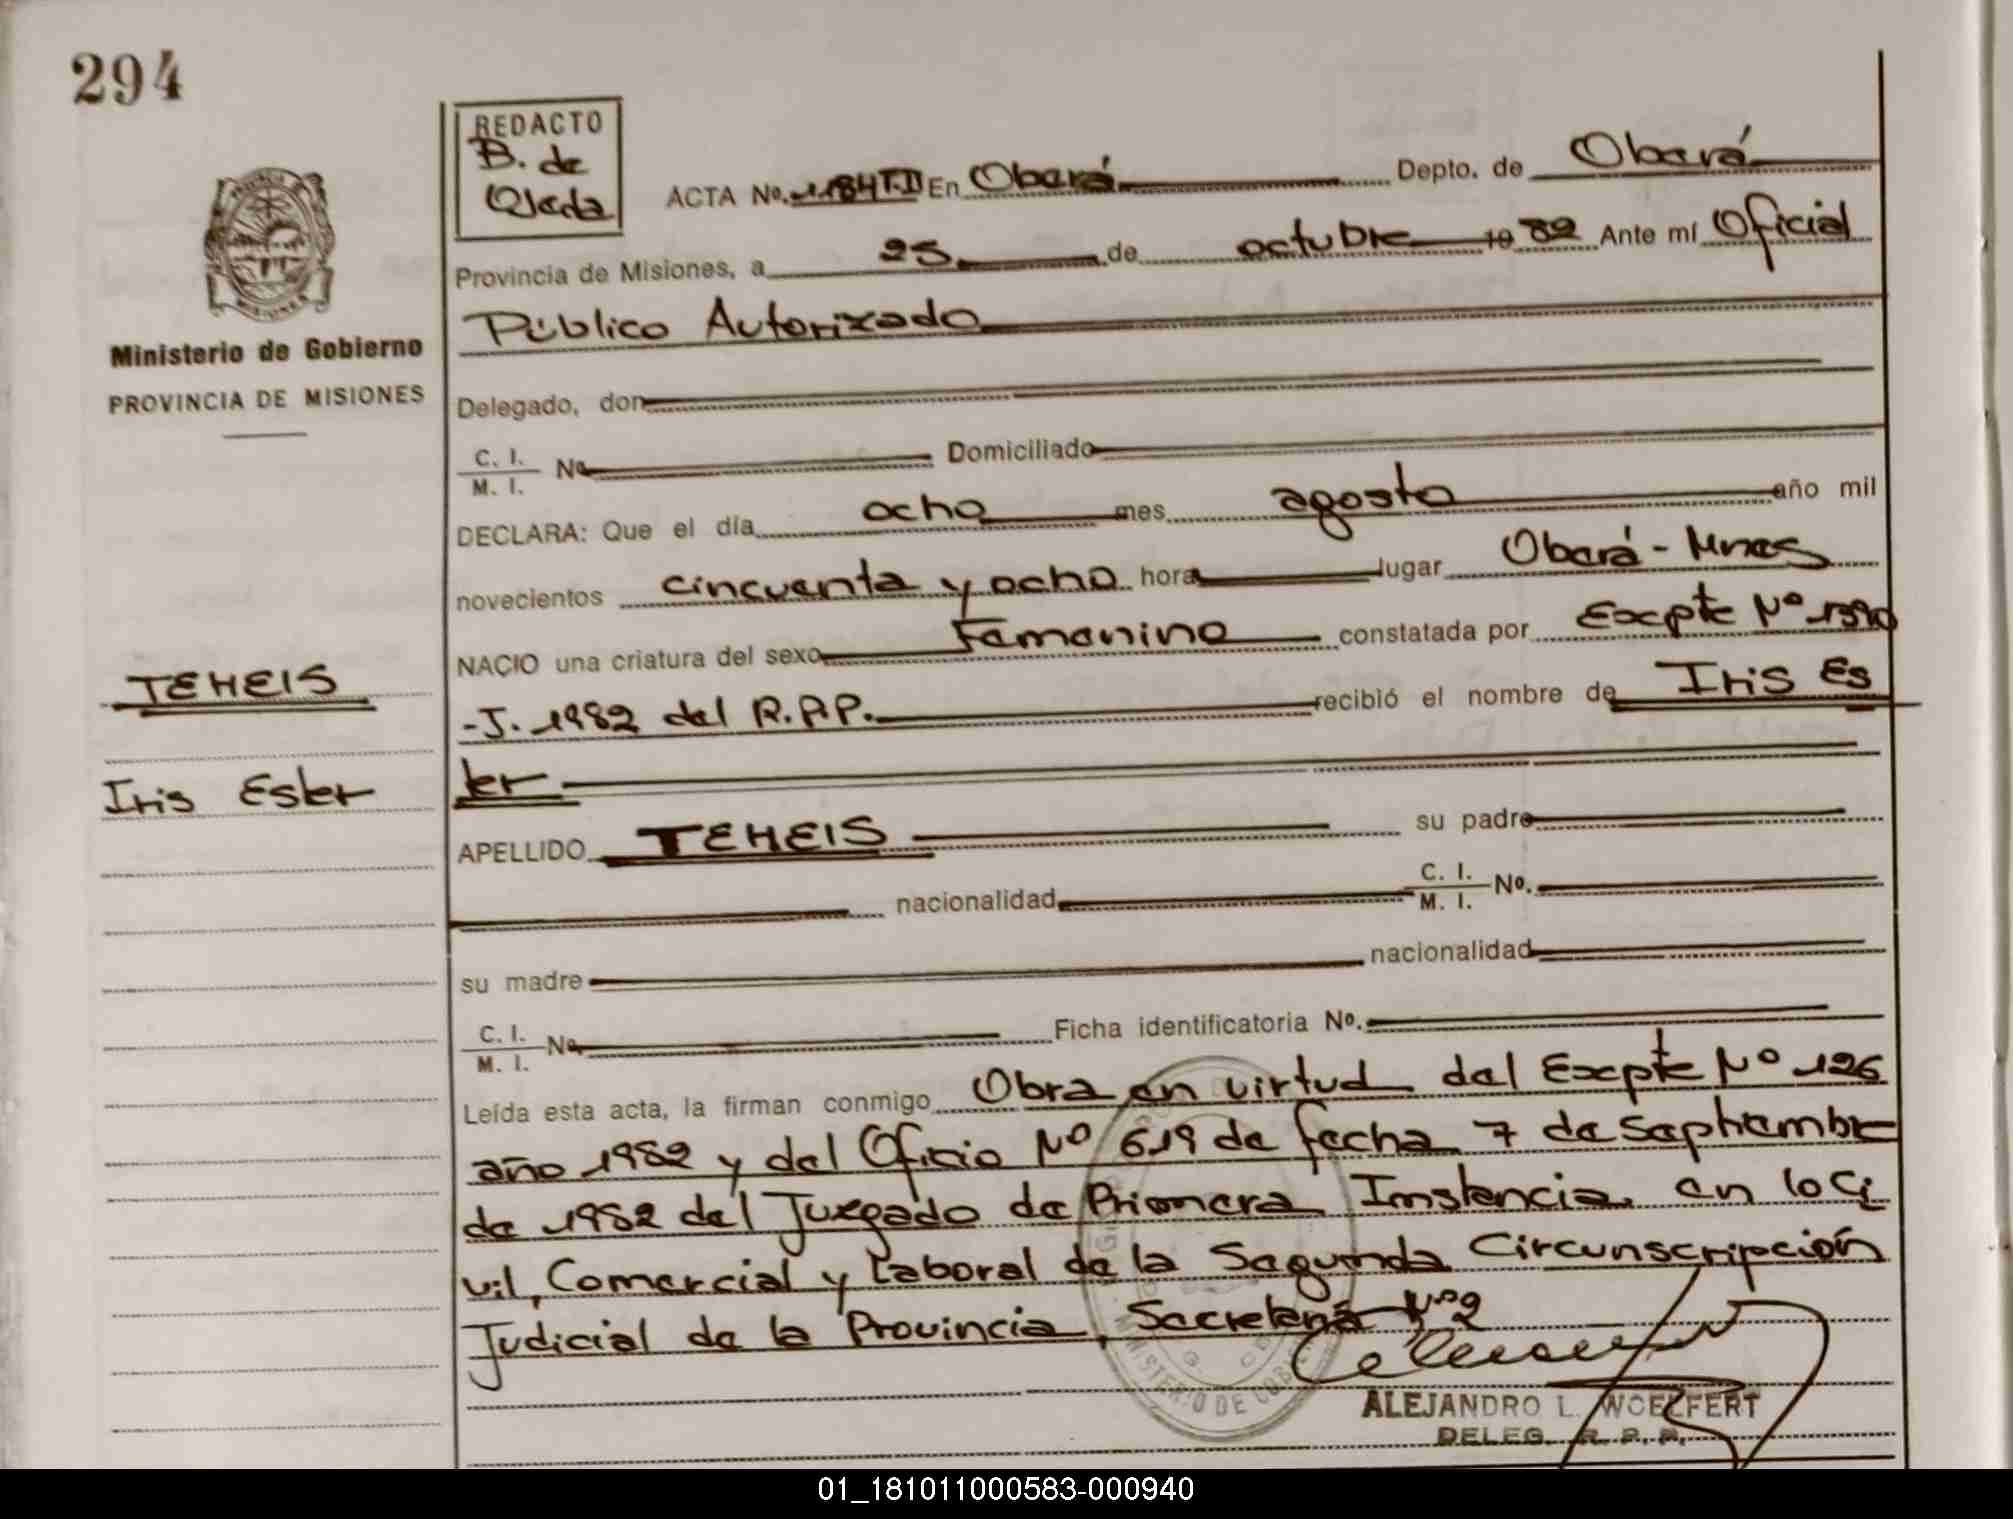 294
REDACTO
B. de
Ojeda
ACTA No. 1184 T.II En Oberá Depto. de Oberá
Provincia de Misiones, a 25 de octubre 19 82 Ante mí Oficial
Público Autorizado
Ministerio de Gobierno
PROVINCIA DE MISIONES
Delegado, don
C. I.
M. I. No Domiciliado
DECLARA: Que el día ocho mes agosto año mil
novecientos cincuenta y ocho hora lugar Oberá - Mnes
NACIO una criatura del sexo Femenino constatada por Excpte Nº 1390
-J. 1982 del R.P.P. recibió el nombre de Iris Es
ter
TEHEIS
Iris Ester
APELLIDO TEHEIS su padre
nacionalidad C. I.
M. I. No.
su madre nacionalidad
C. I.
M. I. No Ficha identificatoria No.
Leída esta acta, la firman conmigo Obra en virtud del Excpte Nº 126
año 1982 y del Oficio Nº 619 de fecha 7 de Septiembre
de 1982 del Juzgado de Primera Instancia en lo Ci
vil, Comercial y Laboral de la Segunda Circunscripción
Judicial de la Provincia, Secretaría Nº 2
MINISTERIO DE GOBIERNO
ALEJANDRO L. WOELFERT
DELEG. R. P. P.
01_181011000583-000940